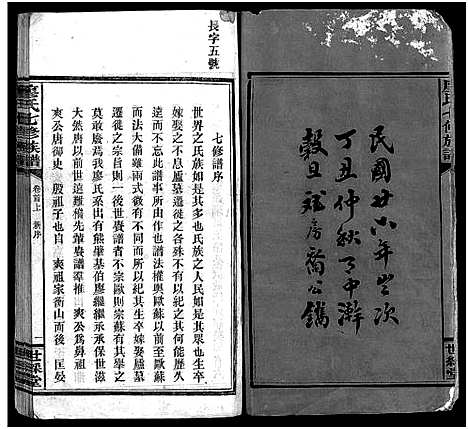 民國廿六年岁次
丁丑仲秋月中澣
穀旦 房喬公鐫
廖氏七修族譜
世綵堂
長字五號
七修譜序
世界之與氏族如是其多也氏族之人民如是其繁也生卒
嫁娶之不息廬墓遷徙之各殊不有以紀之其何能歷久
遠而不忘此譜事之所由作也譜法權輿歐蘇以前至歐蘇
而法大備雖兩式微有不同而所以紀其生卒嫁娶廬墓
遷徙之宗旨則一後世賡譜者不宗歐則宗蘇有由然矣
莫敢廢焉我廖氏系出有熊肇基伯廖繼繼承承保世滋
爽公唐御史 殷祖子也自 爽祖家衡山而後 匡晏
廖氏七修族譜
卷首上 新序
一
世綵堂